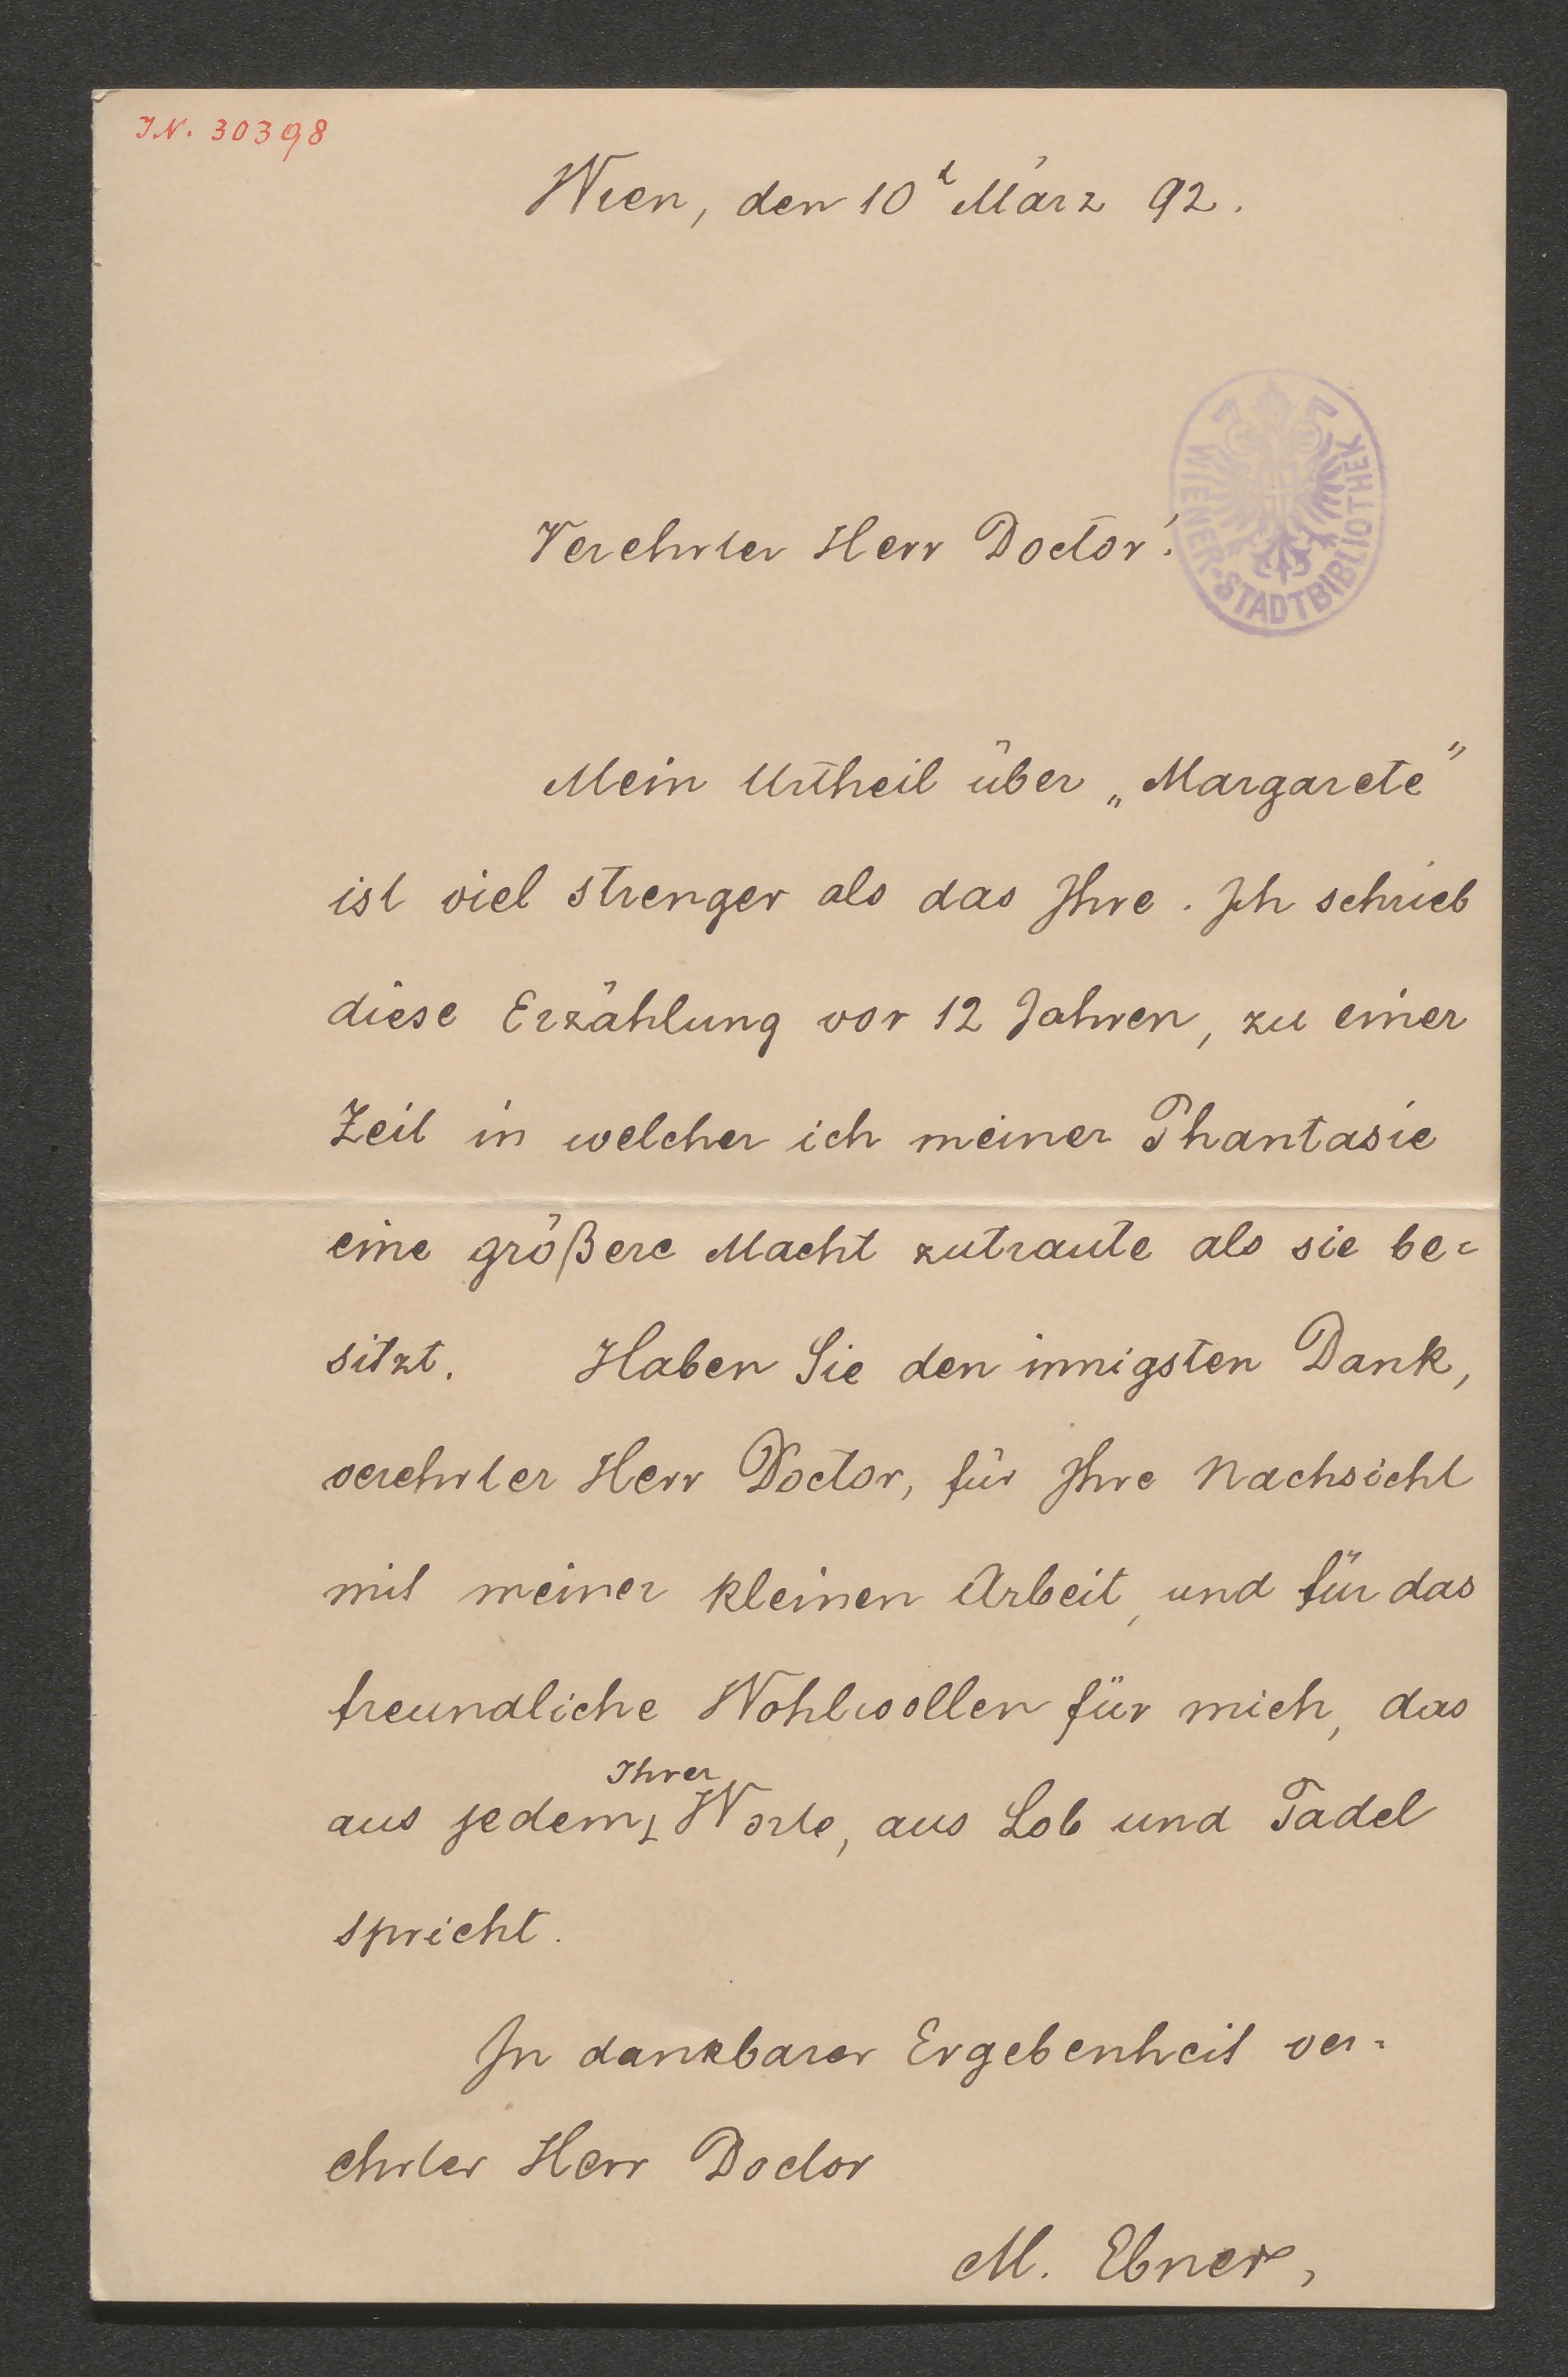 J.N. 30398
Wien, den 10t März 92.
WIENER-STADTBIBLIOTHEK
Verehrter Herr Doctor!
Mein Urtheil über „Margarete"
ist viel strenger als das Ihre. Ich schrieb
diese Erzählung vor 12 Jahren, zu einer
Zeit in welcher ich meiner Phantasie
eine größere Macht zutraute als sie be=
sitzt. Haben Sie den innigsten Dank,
verehrter Herr Doctor, für Ihre Nachsicht
mit meiner kleinen Arbeit, und für das
freundliche Wohlwollen für mich, das
Ihrer
aus jedem Worte, aus Lob und Tadel
spricht.
In dankbarer Ergebenheit ver=
ehrter Herr Doctor
M. Ebner,